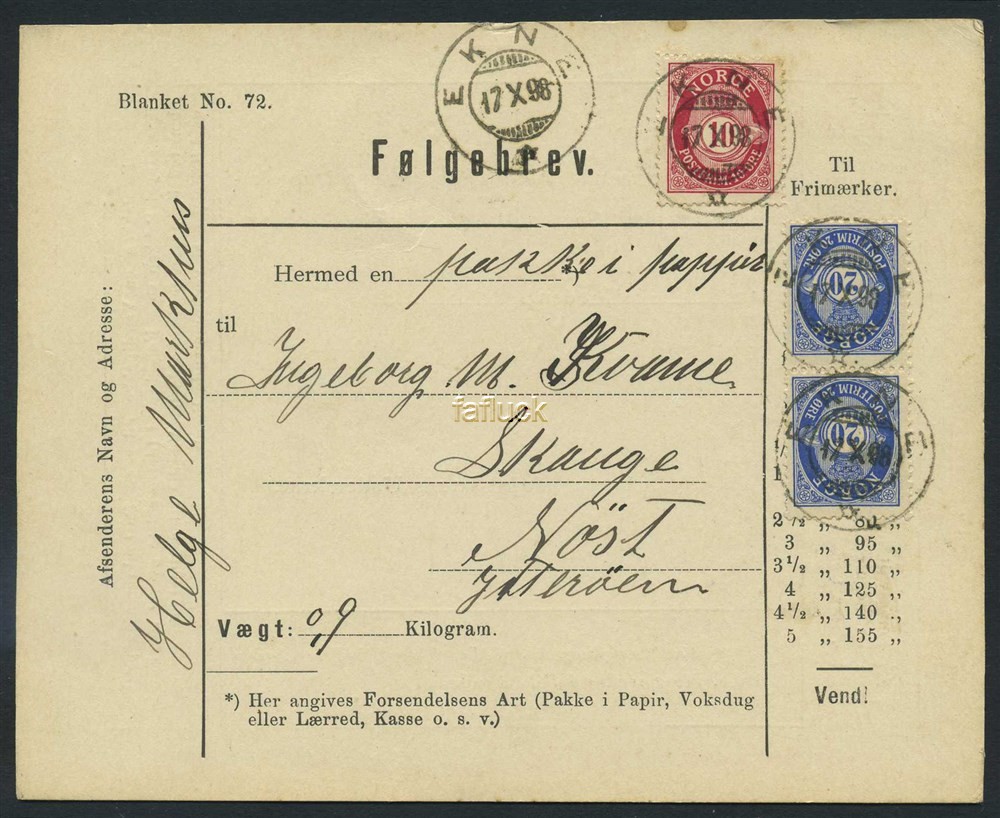 EKNE
17 X 98
NORGE
10
POSTFRIM. 10 ØRE
17 X 98
Blanket No. 72.
Følgebrev.
Til
Frimærker.
Afsenderens Navn og Adresse:
Helge Markhus
Hermed en pakke *) i pappir
til
Ingeborg M. Kvame
fafluck
Skange
Nöst
Ytteröen
Vægt: 0,9 Kilogram.
*) Her angives Forsendelsens Art (Pakke i Papir, Voksdug
eller Lærred, Kasse o. s. v.)
POSTFRIM. 20 ØRE
20
NORGE
17 X 98
POSTFRIM 20 ØRE
20
NORGE
17 X 98
2 1/2 „ 80 „
3 „ 95 „
3 1/2 „ 110 „
4 „ 125 „
4 1/2 „ 140 „
5 „ 155 „
Vend!